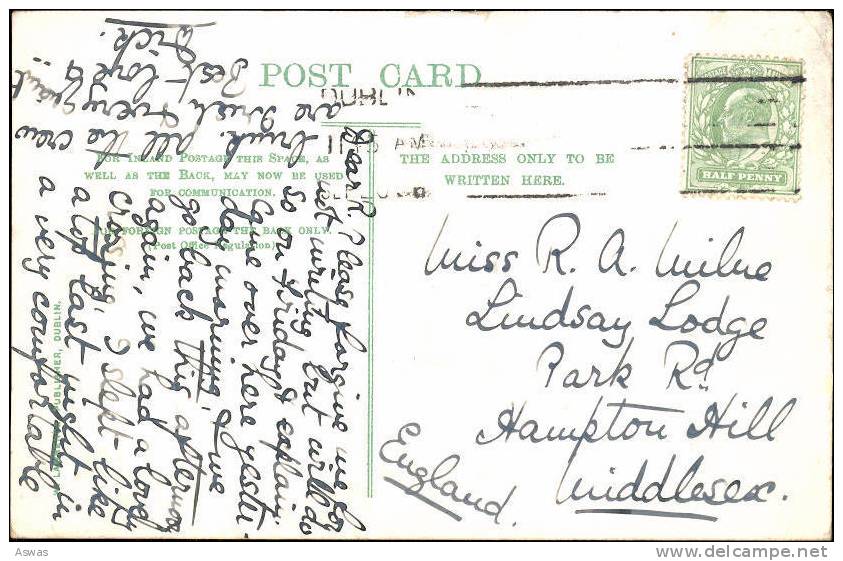 POST CARD
DUBLIN
11 45 AM
FOR INLAND POSTAGE THIS SPACE, AS
WELL AS THE BACK, MAY NOW BE USED
FOR COMMUNICATION.
FOR FOREIGN POSTAGE THE BACK ONLY.
(Post Office Regulation)
THE ADDRESS ONLY TO BE
WRITTEN HERE.
HALF PENNY
Dear R. Please forgive me for
not writing but will do
so on Friday & explain.
Came over here yester-
day morning, & we
go back this afternoon
again, we had a lovely
crossing, I slept like
a top last night in
a very comfortable
bunk. all the crew
are Irish & very quaint
Best love
Dick.
Miss R. A. Milne
Lindsay Lodge
Park Rd
Hampton Hill
Middlesex.
England.
PUBLISHER, DUBLIN.
Aswas
www.delcampe.net